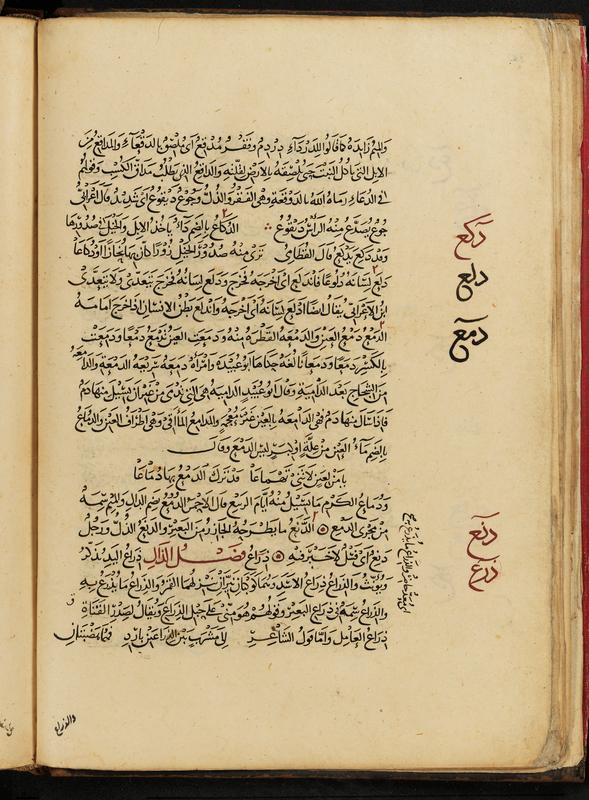 والميم زائدة كما قالوا للدرداء دردم وفقر مدقع اى ملصق بالدقعاء والمداقيع من
الابل التى تاكل النبت حتى تلصقه بالارض لقلته والداقع الذى يطلب مداق الكسب وقولهم
فى الدعاء رماه الله بالدوقعة وهى الفقر والذل وجوع ديقوع اى شديد قال اعرابى
جوع يصدع منه الراس ديقوع الدكاع بالضم داء ياخذ الابل والخيل فى صدورها
وقد دكع يدكع قال القطامى ترى منه صدور الخيل زورا كان بها نحازا او دكاعا
دلع لسانه دلوعا فاندلع اى اخرجه فخرج ودلع لسانه فخرج يتعدى ولا يتعدى
ابن الاعرابى يقال ايضا ادلع لسانه اى اخرجه واندلع بطن الانسان اذا خرج امامه
الدمع دمع العين والدمعة القطرة منه ودمعت العين تدمع دمعا ودمعت
بالكسر دمعا ودمعانا لغة حكاها ابو عبيدة وامراة دمعة سريعة الدمعة والدامعة
من الشجاج بعد الدامية وقال ابو عبيد الدامية هى التى تدمى من غير ان يسيل منها دم
فاذا سال منها دم فهى الدامعة بالعين غير معجمة والمدامع الماقى وهى اطراف العين والدماع
بالضم ماء العين من علة او كبر ليس الدمع وقال
يا من لعين لا تنى تهماعا قد ترك الدمع بها دماعا
ودماع الكرم ما يسيل منه ايام الربيع قال الاحمر الدمع بضم الدال والميم سمة
من مجرى الدمع الدنع ما يطرحه الجازر من البعير والدنع الذل ورجل
دنع اى فسل لا خير فيه فصل الذال ذراع اليد يذكر
ويونث والذراع ذراع الاسد وهما كوكبان نيران ينزلهما القمر والذراع ما يذرع به
والذراع سمة فى ذراع البعير وقولهم هو منى على حبل الذراع ويقال لصدر القناة
ذراع العامل واما قول الشاعر الى مشرب بين الذراعين بارد فهما هضبتان
دكع
دلع
دمع
دنع
ذرع
والذراع